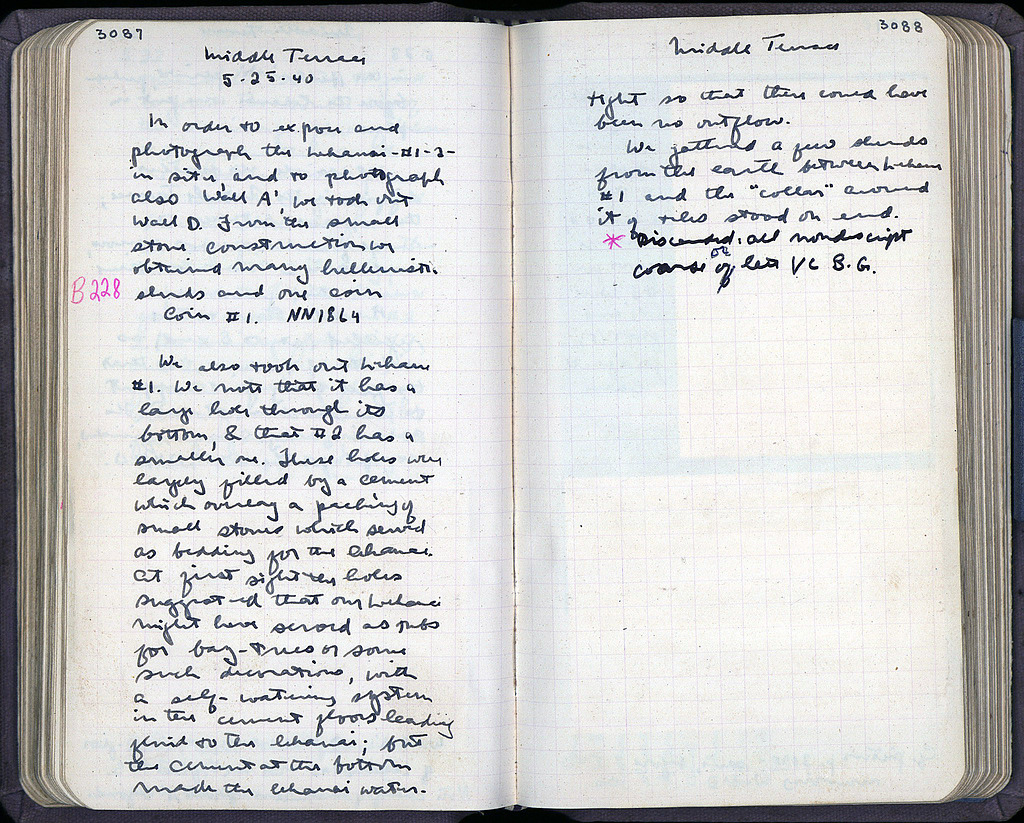 3087
Middle Terrace
5-25-40
In order to expose and
photograph the lekanai-#1-2-
in situ, and to photograph
also Wall A', we took out
Wall D. From the small
stone construction we
obtained many hellenistic
B 228
sherds and one coin
Coin #1. NN1864
We also took out lekane
#1. We note that it has a
large hole through its
bottom, & that #2 has a
smaller one. These holes were
largely filled by a cement
which overlay a packing of
small stones which served
as bedding for the lekanai.
At first sight the holes
suggested that our lekanai
might have served as tubs
for bay-trees or some
such decorations, with
a self-watering system
in the cement floors leading
fluid to the lekanai; but
the cement at the bottom
made the lekanai water-
3088
Middle Terrace
tight so that there could have
been no outflow.
We gathered a few sherds
from the earth between lekane
#1 and the "collar" around
it of tiles stood on end.
* Discarded: all nondescript
coarse or of late V c B.C.